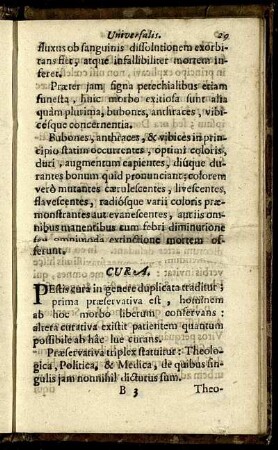 Universalis. 29
fluxus ob sanguinis dissolutionem exorbi-
tans sit, atque infallibiliter mortem in-
feret.
Præter jam signa petechialibus etiam
funesta, huic morbo exitiosa sunt alia
quàm plurima, bubones, anthraces, vibi-
césque concernentia.
Bubones, anthraces, & vibices in prin-
cipio statim occurrentes, optimi coloris,
duri, augmentum capientes, diúque du-
rantes bonum quid pronunciant; colorem
verò mutantes cærulescentes, livescentes,
flavescentes, radiósque varii coloris præ-
monstrantes aut evanescentes, autiis om-
nibus manentibus cum febri diminutione
seu omnimoda extinctione mortem of-
ferunt.
CURA.
PEstis cura in genere duplicata traditur;
prima præservativa est, hominem
ab hoc morbo liberum conservans:
altera curativa existit patientem quantum
possibile ab hâc lue curans.
Præservativa triplex statuitur: Theolo-
gica, Politica, & Medica, de quibus sin-
gulis jam nonnihil dicturus sum.
B 3 Theo-